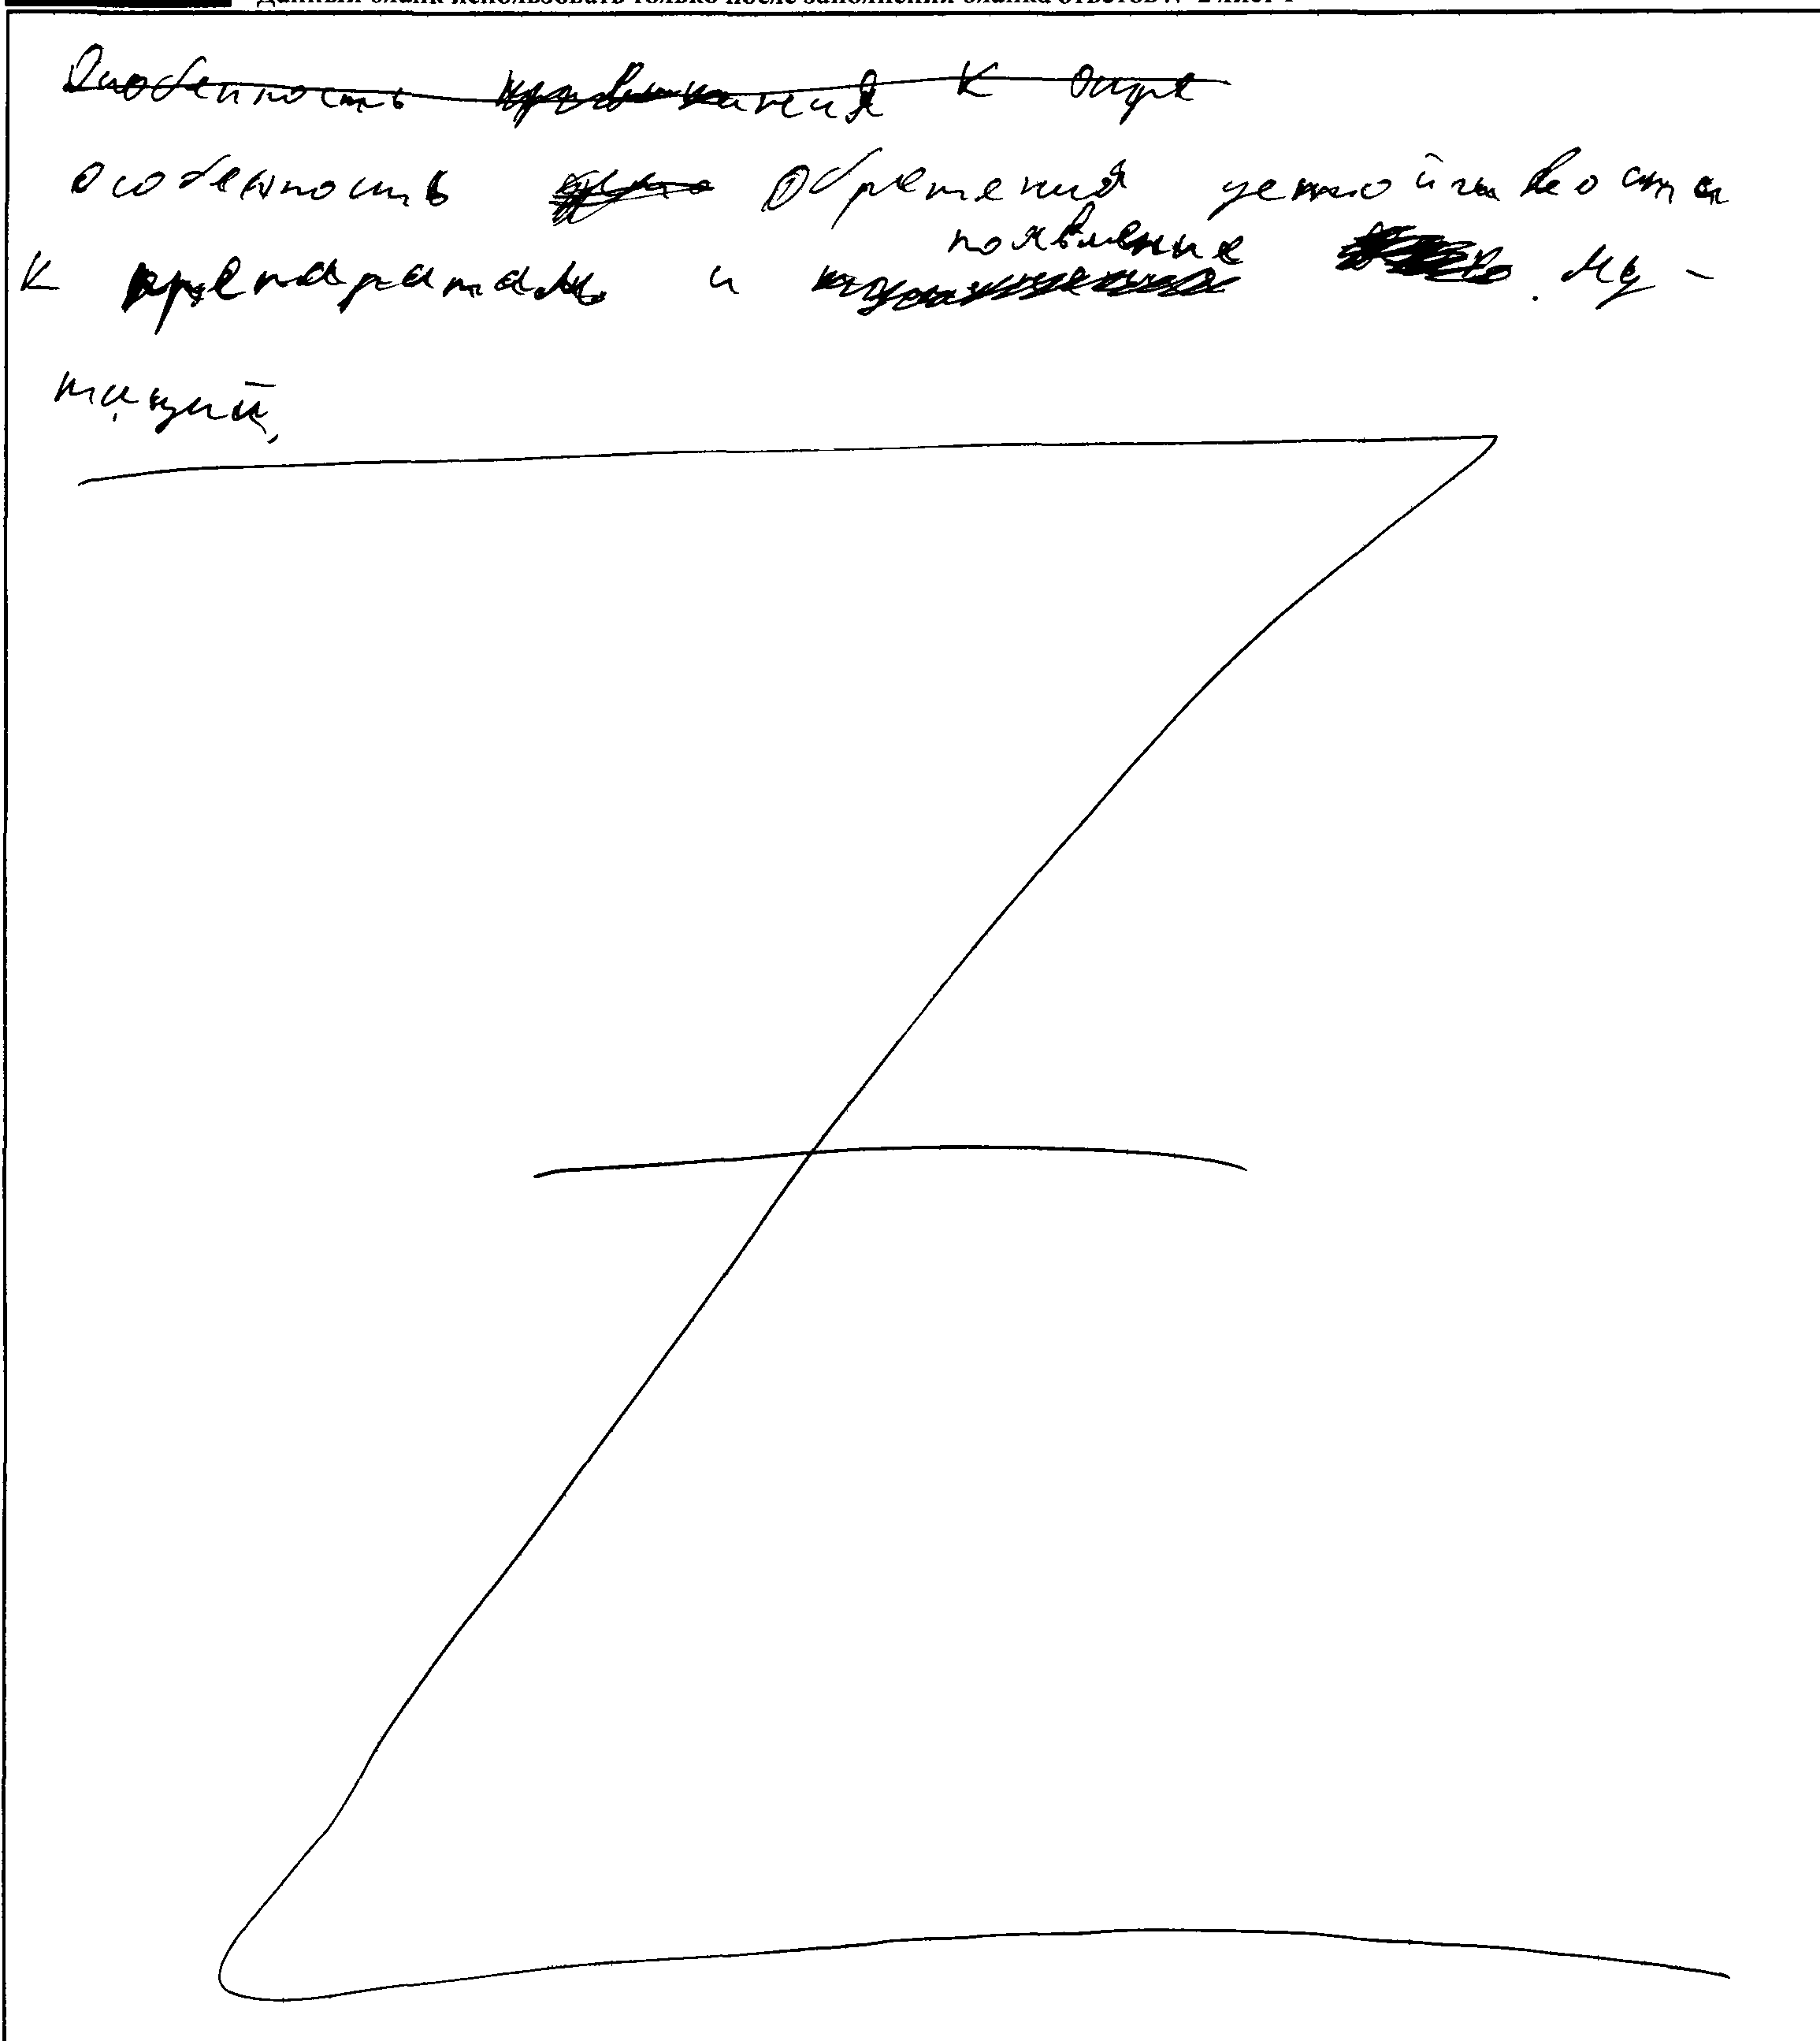 Данный бланк использовать только после заполнения бланка ответов № 2 лист 1
Особенность привыкания к
особенность обретения устойчивости
к препаратам и появление му-
таций.